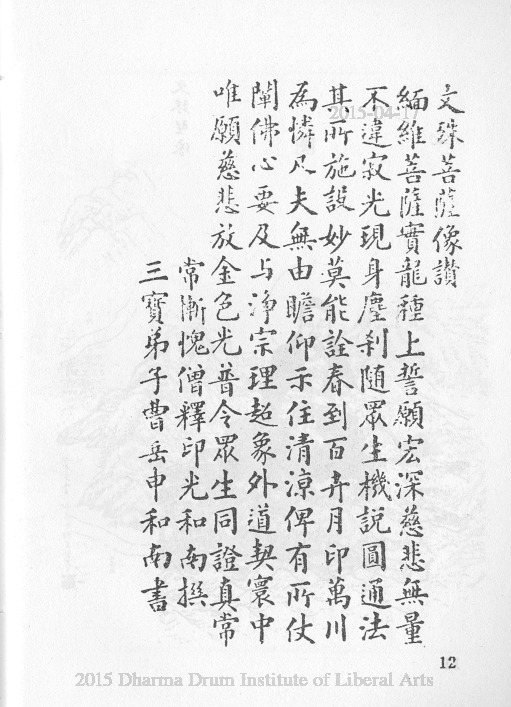 文殊菩薩像讚
緬維菩薩實龍種上誓願宏深慈悲無量
不違寂光現身塵刹随眾生機說圓通法
其所施設妙莫能詮春到百卉月印萬川
為憐凡夫無由瞻仰示住清涼俾有所仗
闡佛心要及与淨宗理超象外道契寰中
唯願慈悲放金色光普令眾生同證真常
常慚愧僧釋印光和南撰
三寶弟子曹岳申和南書
2015-04-17
12
2015 Dharma Drum Institute of Liberal Arts